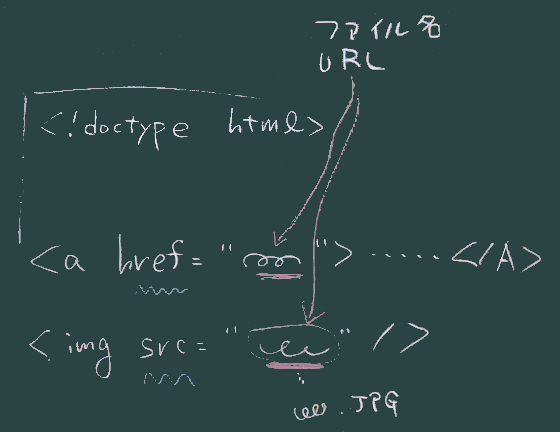 ファイル名
URL
<!doctype html>
<a href=" ">.....</A>
<img src=" " />
.JPG